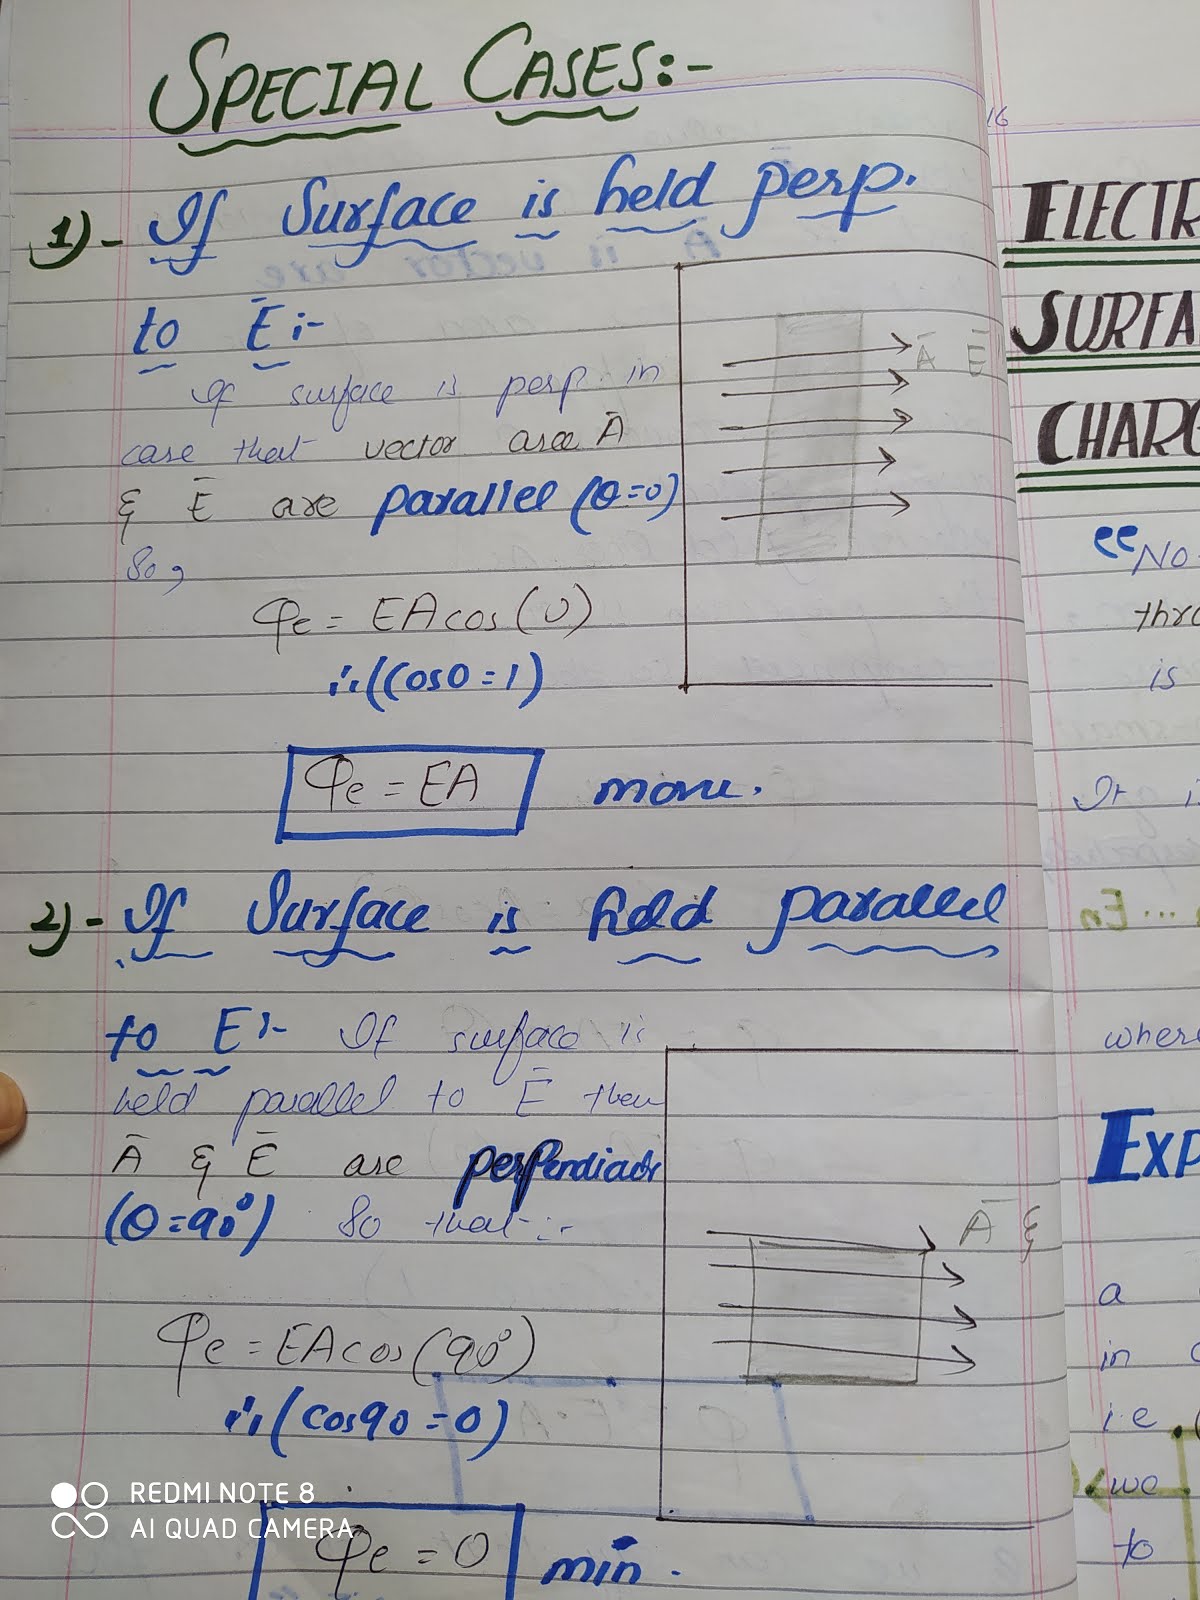 SPECIAL CASES:-
1)- If Surface is held perp.
to E̅ :-
If surface is perp. in
case that vector area A̅
& E̅ are parallel (θ=0)
So,
φe = EA cos(0)
∴ (Cos0 = 1)
φe = EA
A̅ E̅
2)- If Surface is held parallel
to E :- If surface is
held parallel to E̅ then
A̅ & E̅ are perpendicular
(θ=90°) So that :-
φe = EA cos(90°)
∴ (cos90 = 0)
φe = 0 min.
A̅ &
16
ELECTR
SURFA
CHARG
“No
thro
is
It i
En
where
EXP
a
in
i.e
we
to
REDMI NOTE 8
AI QUAD CAMERA